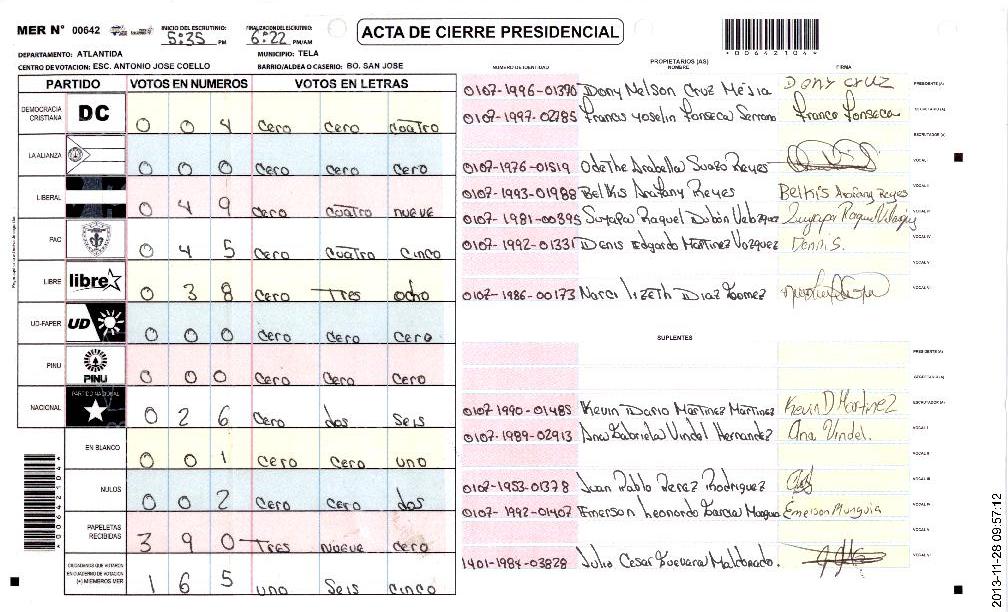 MER N° 00642 INICIO DEL ESCRUTINIO: 5:35 PM FINALIZACION DEL ESCRUTINIO: 6:22 PM/AM
ACTA DE CIERRE PRESIDENCIAL
*00642104*
DEPARTAMENTO: ATLANTIDA MUNICIPIO: TELA
CENTRO DE VOTACION: ESC. ANTONIO JOSE COELLO BARRIO/ALDEA O CASERIO: BO. SAN JOSE
PARTIDO VOTOS EN NUMEROS VOTOS EN LETRAS
DEMOCRACIA CRISTIANA DC 0 0 4 cero cero cuatro
LA ALIANZA 0 0 0 cero cero cero
LIBERAL 0 4 9 cero cuatro nueve
PAC 0 4 5 cero cuatro cinco
LIBRE libre 0 3 8 cero Tres ocho
UD-FAPER UD 0 0 0 cero cero cero
PINU PINU 0 0 0 cero cero cero
NACIONAL PARTIDO NACIONAL 0 2 6 cero dos seis
EN BLANCO 0 0 1 cero cero uno
NULOS 0 0 2 cero cero dos
PAPELETAS RECIBIDAS 3 9 0 Tres nueve cero
CIUDADANOS QUE VOTARON EN CUADERNO DE VOTACION (+) MIEMBROS MER 1 6 5 uno seis cinco
*00642104*
PROPIETARIOS (AS)
NUMERO DE IDENTIDAD NOMBRE FIRMA
0107-1996-01390 Dony Nelson Cruz Mejia Dony Cruz PRESIDENTE (A)
0107-1997-02785 Francis Yoselin Fonseca Serrano Fonseca SECRETARIO (A)
ESCRUTADOR (A)
0107-1976-01519 Odethe Arabella Suazo Reyes VOCAL I
0107-1993-01988 Belkis Arafany Reyes Belkis Arafany Reyes VOCAL II
0107-1981-00395 Suyapa Raquel Dubón Velazquez Suyapa Raquel VOCAL III
0107-1992-01331 Denis Edgardo Martinez Vazquez Dennis. VOCAL IV
VOCAL V
0107-1986-00173 Norci lizeth Diaz Gomez VOCAL VI
SUPLENTES
PRESIDENTE (A)
SECRETARIO (A)
0107-1990-01485 Kevin Dario Martinez Martinez Kevin D Martinez ESCRUTADOR (A)
0107-1989-02913 Ana Gabriela Vindel Hernandez Ana Vindel. VOCAL I
VOCAL II
0107-1953-01378 Juan Pablo Perez Rodriguez VOCAL III
0107-1992-01407 Emerson Leonardo Garcia Munguia Emerson Munguia VOCAL IV
VOCAL V
1401-1984-03828 Julio Cesar Guevara Maldonado. VOCAL VI
2013-11-28 09:57:12